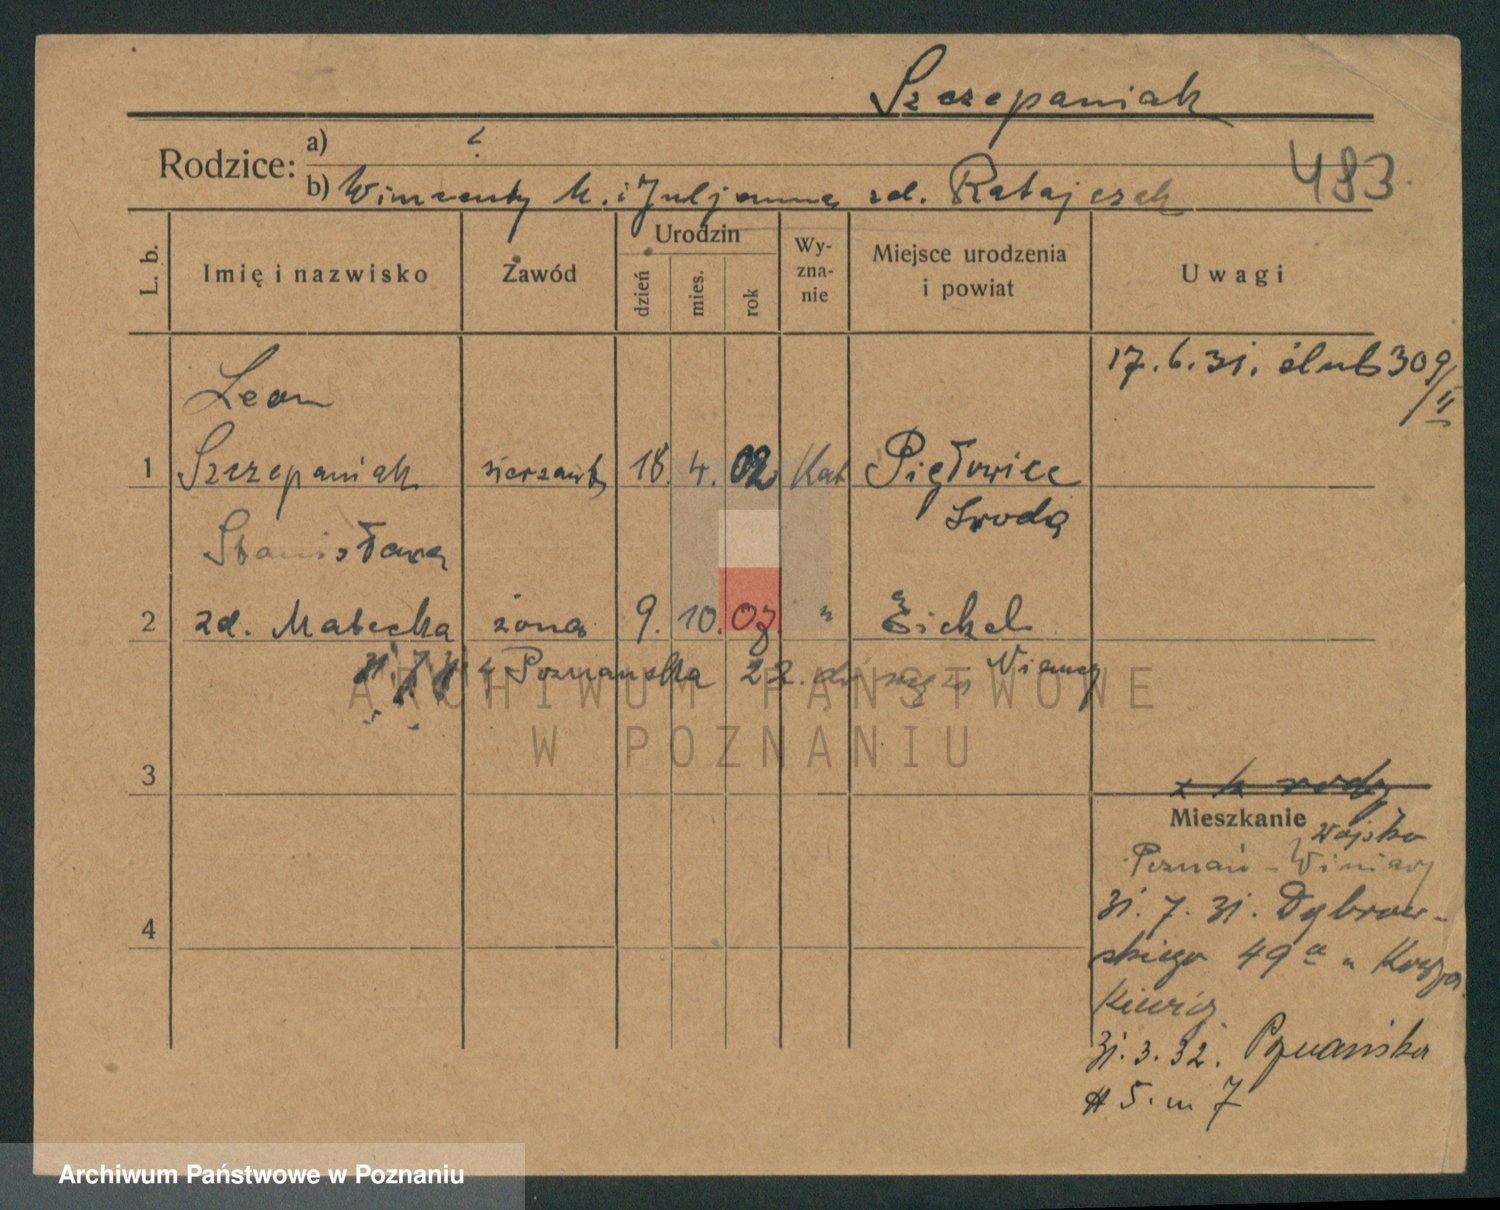 Szczepaniak
Rodzice:
a) ?
b) Wincenty M. i Juljanna zd. Ratajczak
483
L. b.
Imię i nazwisko
Zawód
Urodzin
dzień
mies.
rok
Wy-
zna-
nie
Miejsce urodzenia
i powiat
Uwagi
17.6.31. ślub 309/II
Leon
1 Szczepaniak sierżant 18. 4. 02 Kat Piętowice
Środa
Stanisława
2 zd. Matecka żona 9. 10. 07. " Eickel
Poznańska 22. Niemcy
3
z k rodz
Mieszkanie
wojsko
Poznań - Winiary
31. 7. 31. Dąbrow-
4
skiego 49a u Korza
kiewicz
31. 3. 32. Poznańska
5. m 7
ARCHIWUM PAŃSTWOWE
W POZNANIU
Archiwum Państwowe w Poznaniu